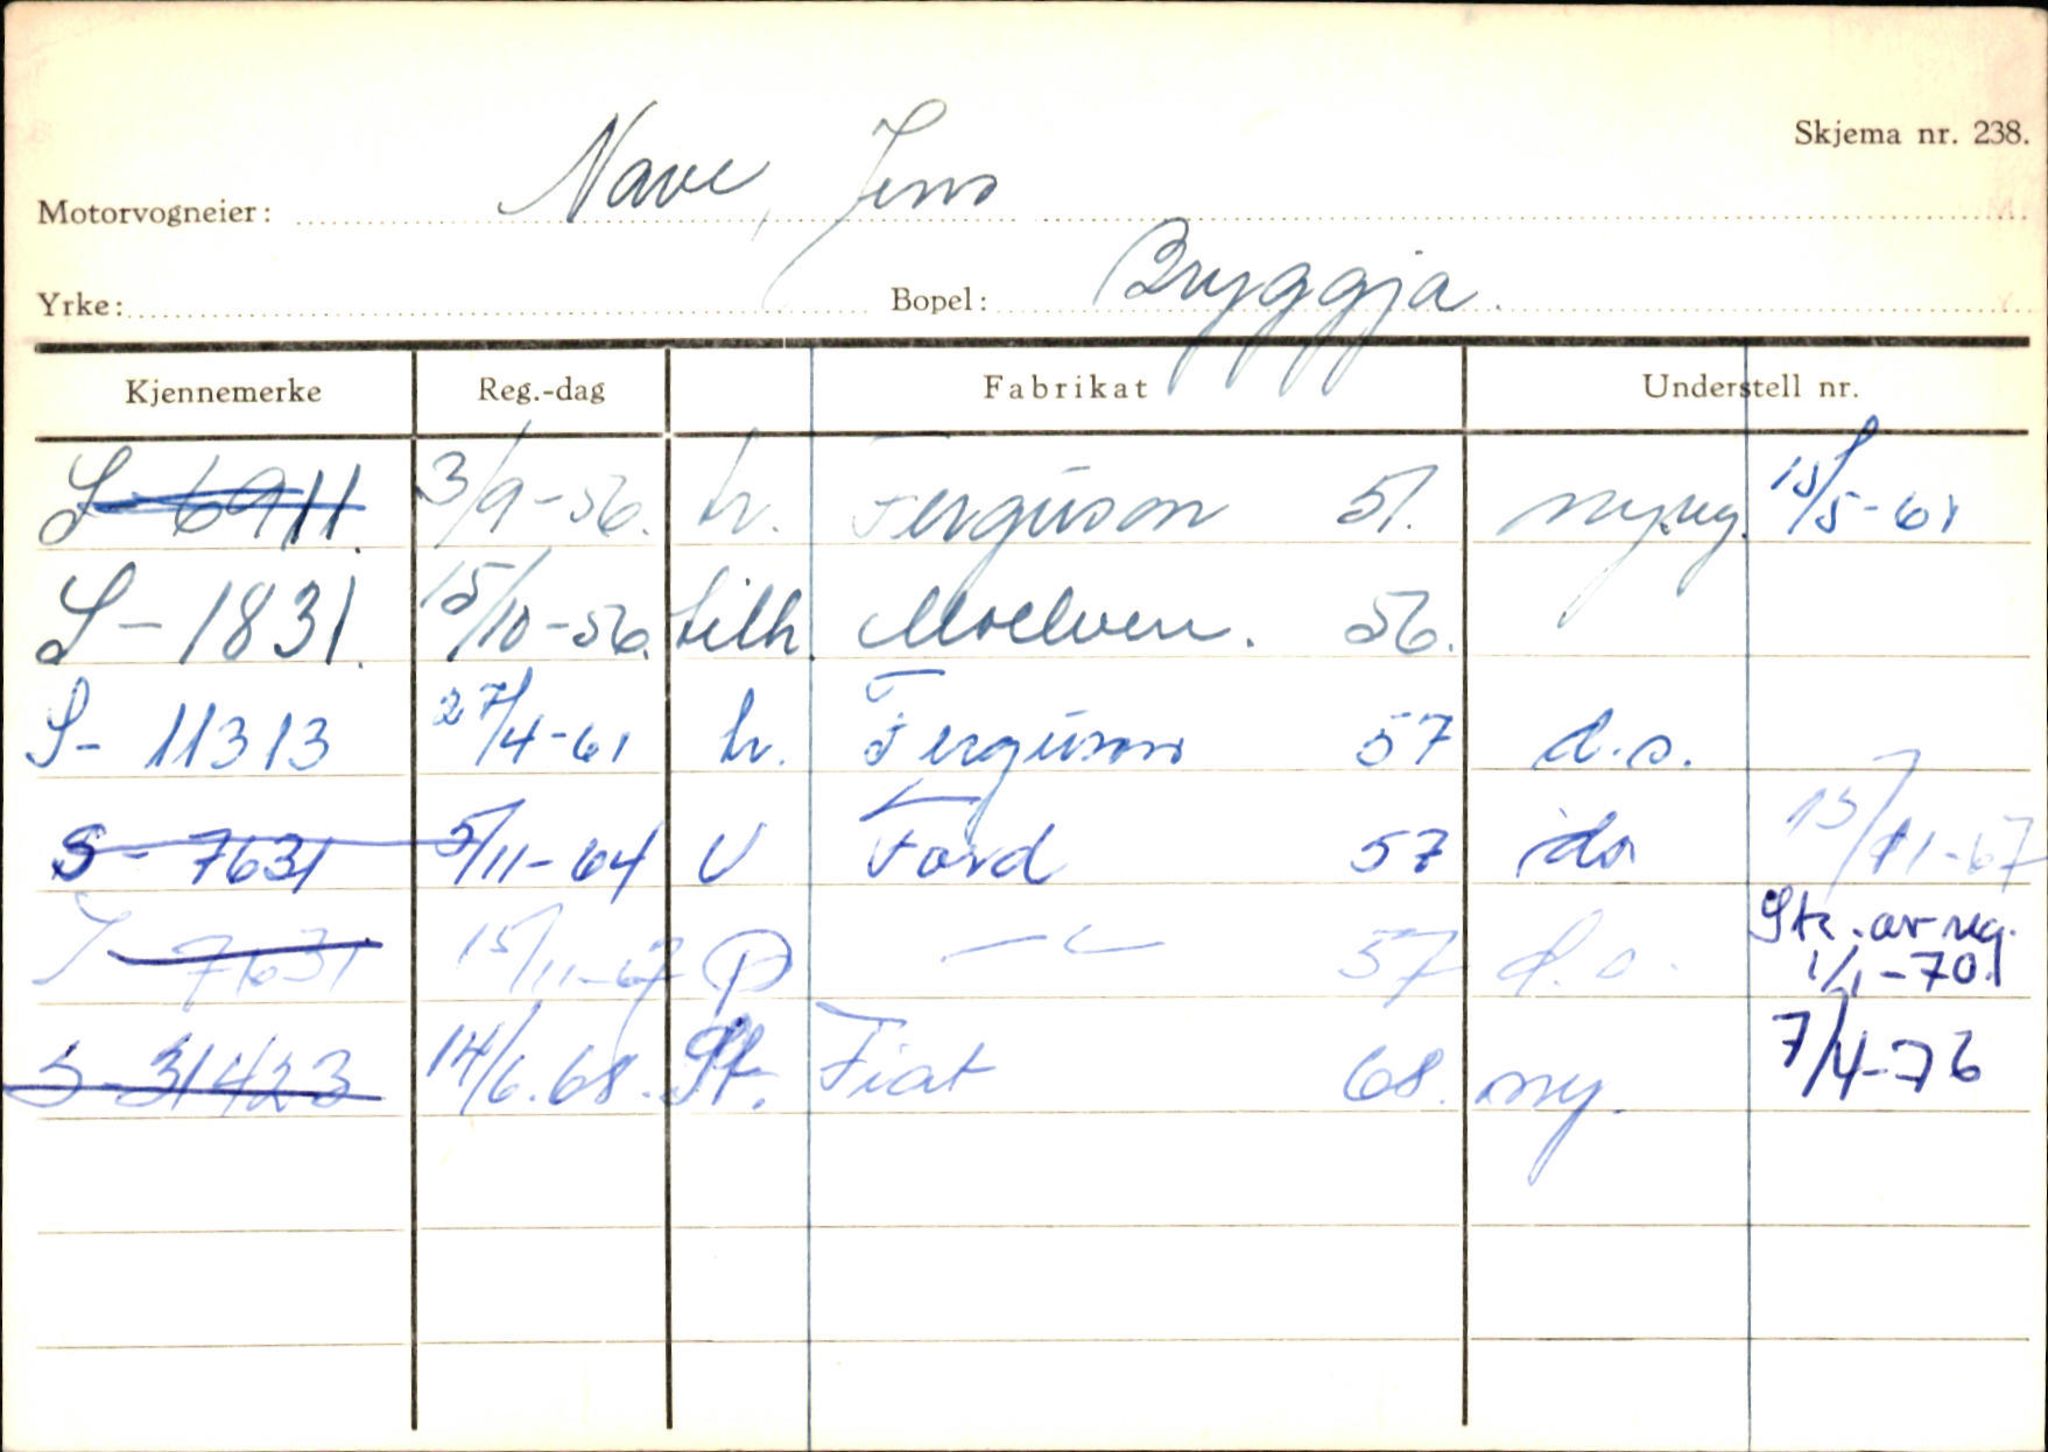 Skjema nr. 238.
Motorvogneier: Nave, Jens
Yrke: Bopel: Bryggja.
Kjennemerke Reg.-dag Fabrikat Understell nr.
S-6911. 3/9-56. tr. Ferguson 51. ny.reg. 15/5-61
S-1831. 15/10-56. tilh. Moelven. 56.
S-11313 27/4-61 tr. Ferguson 57 d.o.
S-7631 5/11-64 V Ford 57 do 15/11-67
S 7631 15/11-67 P 57 d.o. Str. av reg. 1/1-70.
S-31423 14/6.68. St. Fiat 68. ny. 7/4-76